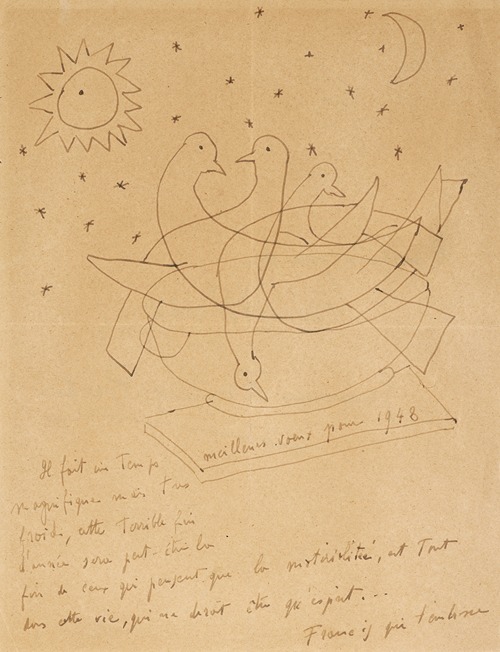 meilleurs voeux pour 1948
Il fait un Temps
magnifique mais tres
froid, cette Terrible fin
d'année sera peut-être la
fin de ceux qui pensent que la matérialité, est Tout
dans cette vie, qui ne devait être qu'esprit...
Francis qui t'embrasse